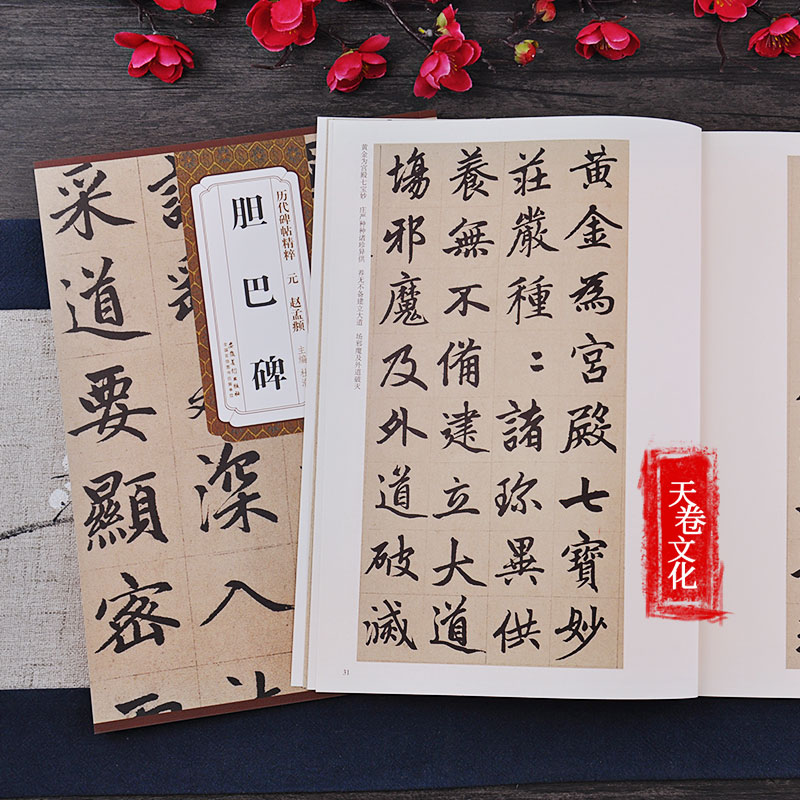 胆巴碑
历代碑帖精粹 元 赵孟頫
主编
采道要顯密
深入
黄金为宫殿七宝妙 庄严种种诸珍异供 养无不备建立大道 场邪魔及外道破灭
黄金為宮殿七寶妙
莊嚴種〻諸珎異供
養無不備建立大道
場邪魔及外道破滅
31
天卷文化